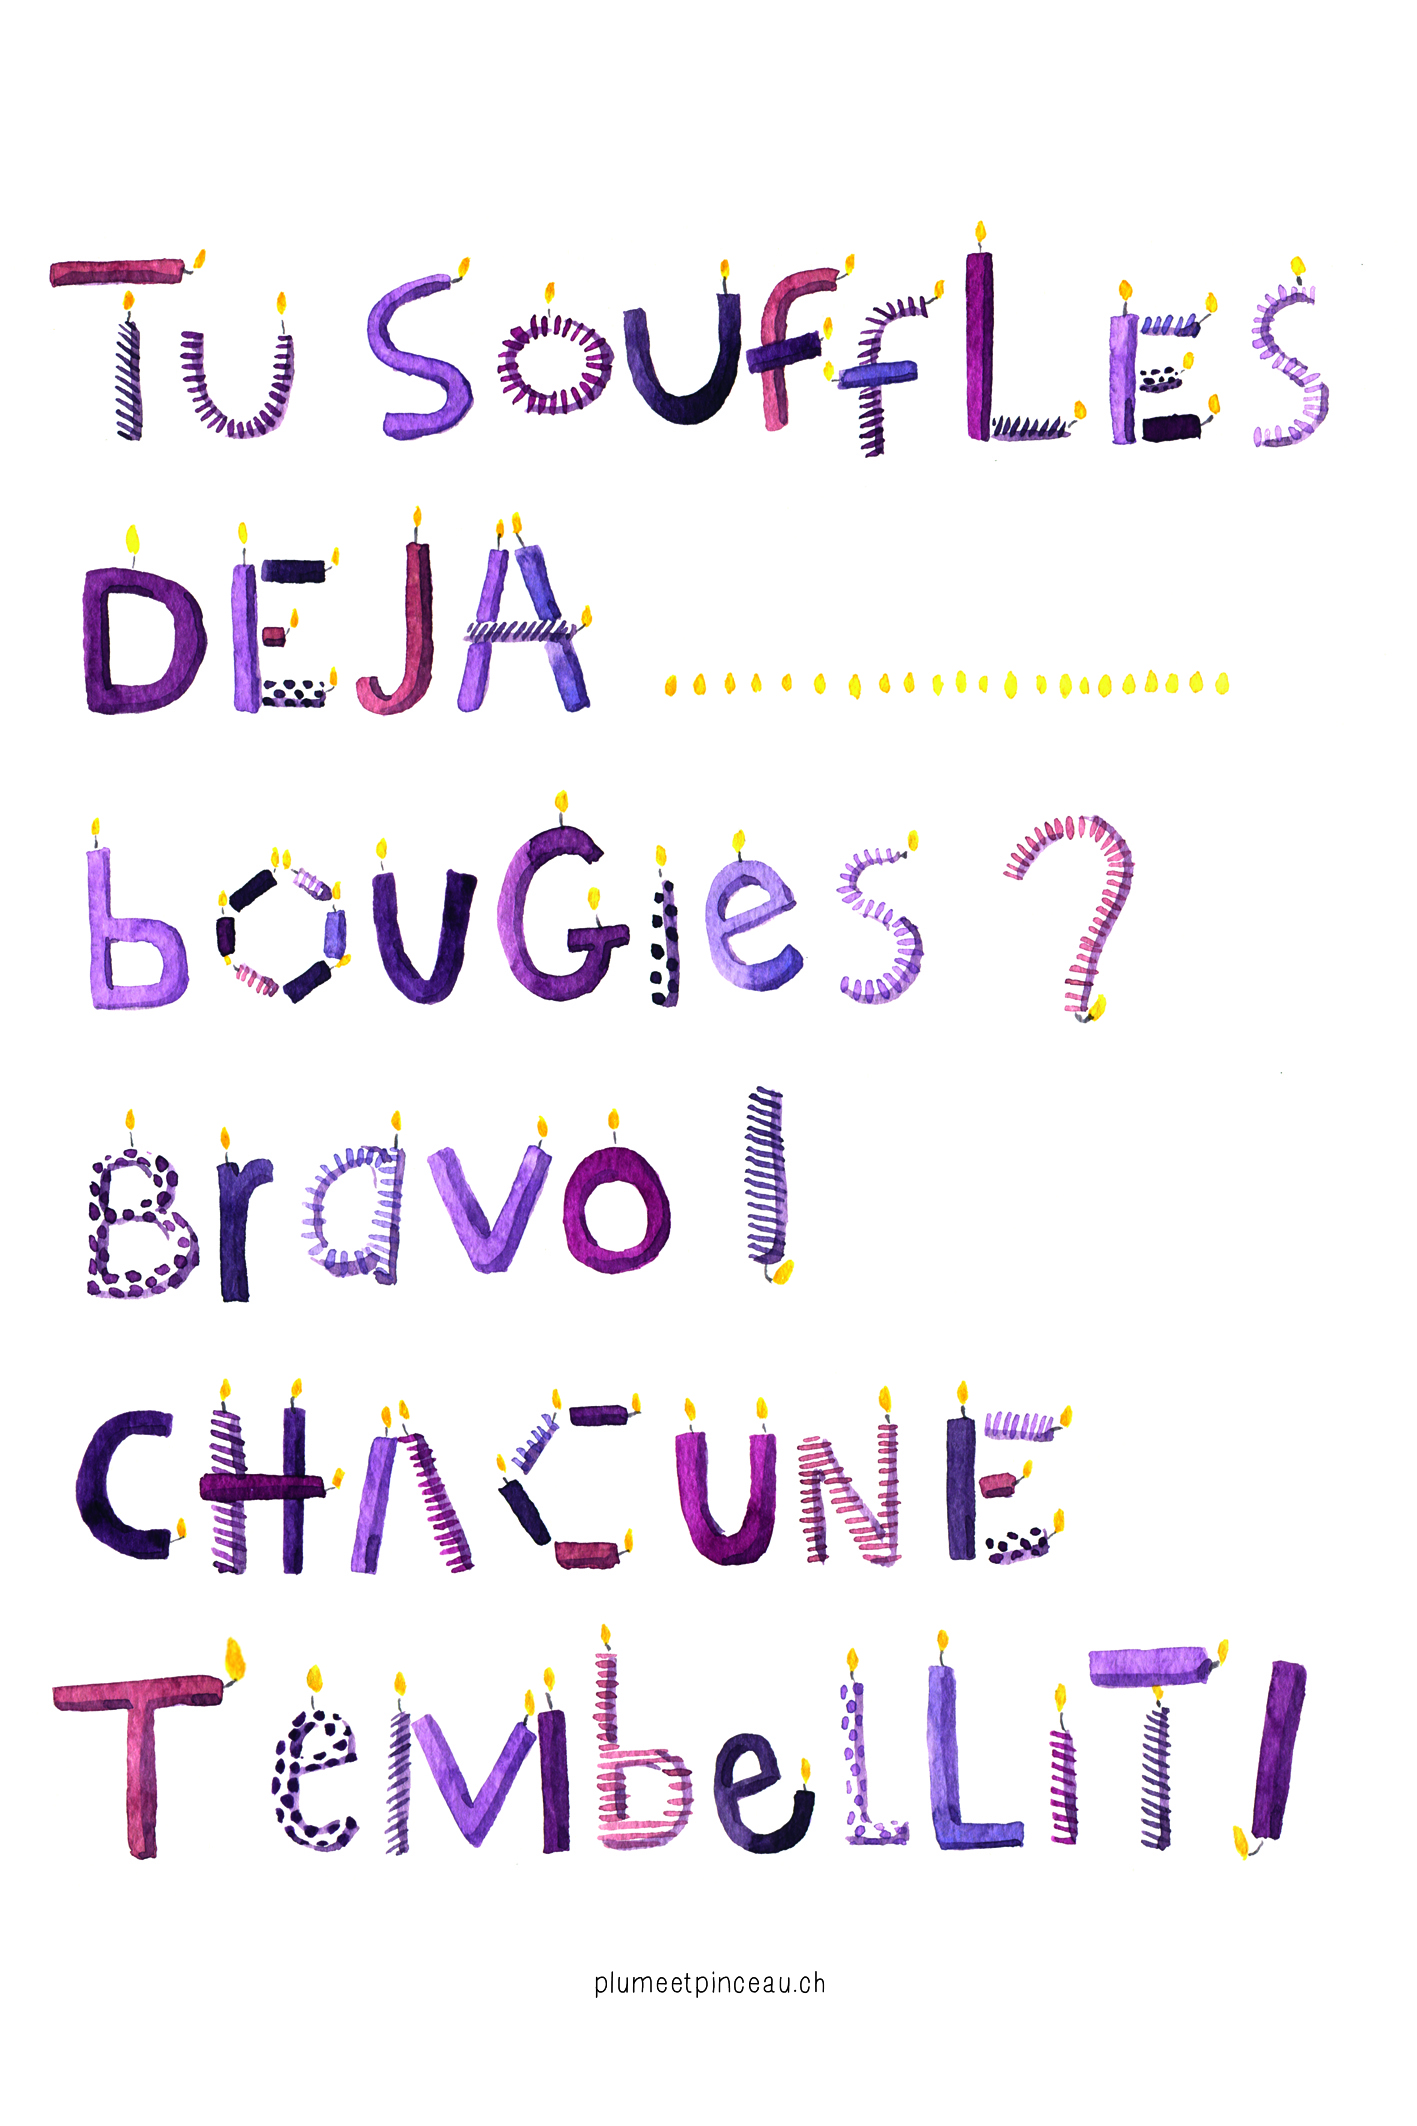 Tu Souffles
DEJA ......................
bouGies ?
Bravo !
CHACUNE
TembeLLiT !
plumeetpinceau.ch